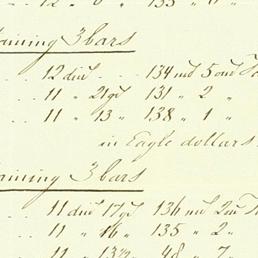 12 " 6 " 135 " 6 "
aining 3 bars
12 dwt 134 md 5 oun
11 " 21 gr 131 " 2 "
11 " 13 " 138 " 1 "
in Eagle dollars.
aining 3 bars
11 dwt 17 gr 136 md 2 oun
11 " 16 " 135 " 2 "
11 " 13½ " 48 " 7 "